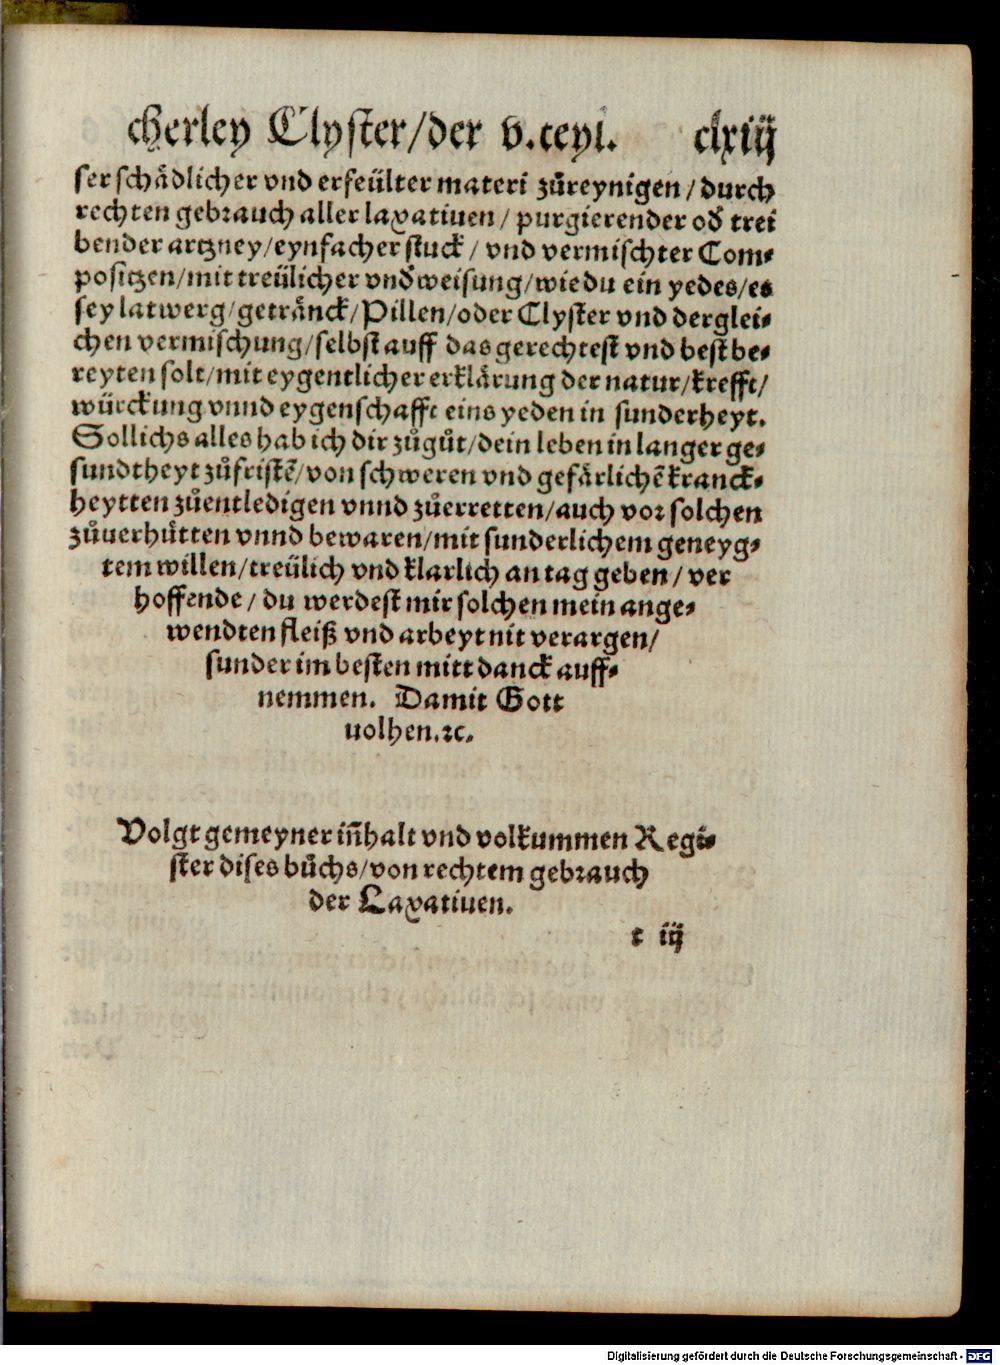 cherley Clyster/der v.teyl. clxiij
ser schådlicher vnd erfeülter materi zůreynigen/durch
rechten gebrauch aller laxatiuen/ purgierender od̉ trei
bender artzney/eynfacher stuck/ vnd vermischter Com⸗
positzen/mit treülicher vnd̉weisung/wie du ein yedes/es
sey latwerg/getränck/Pillen/oder Clyster vnd derglei⸗
chen vermischung/selbst auff das gerechtest vnd best be⸗
reyten solt/mit eygentlicher erklärung der natur/krefft/
würckung vnnd eygenschafft eins yeden in sunderheyt.
Sollichs alles hab ich dir zůgůt/dein leben in langer ge⸗
sundtheyt zůfristē/von schweren vnd gefärlichē kranck⸗
heytten zůentledigen vnnd zůerretten/auch vor solchen
zůuerhütten vnnd bewaren/mit sunderlichem geneyg⸗
tem willen/treülich vnd klarlich an tag geben/ ver
hoffende/ du werdest mir solchen mein ange⸗
wendten fleiß vnd arbeyt nit verargen/
sunder im besten mitt danck auff⸗
nemmen. Damit Gott
uolhen.ꝛc.
Volgt gemeyner iñhalt vnd volkummen Regi⸗
ster dises bůchs/von rechtem gebrauch
der Laxatiuen.
t iij
Digitalisierung gefördert durch die Deutsche Forschungsgemeinschaft - DFG